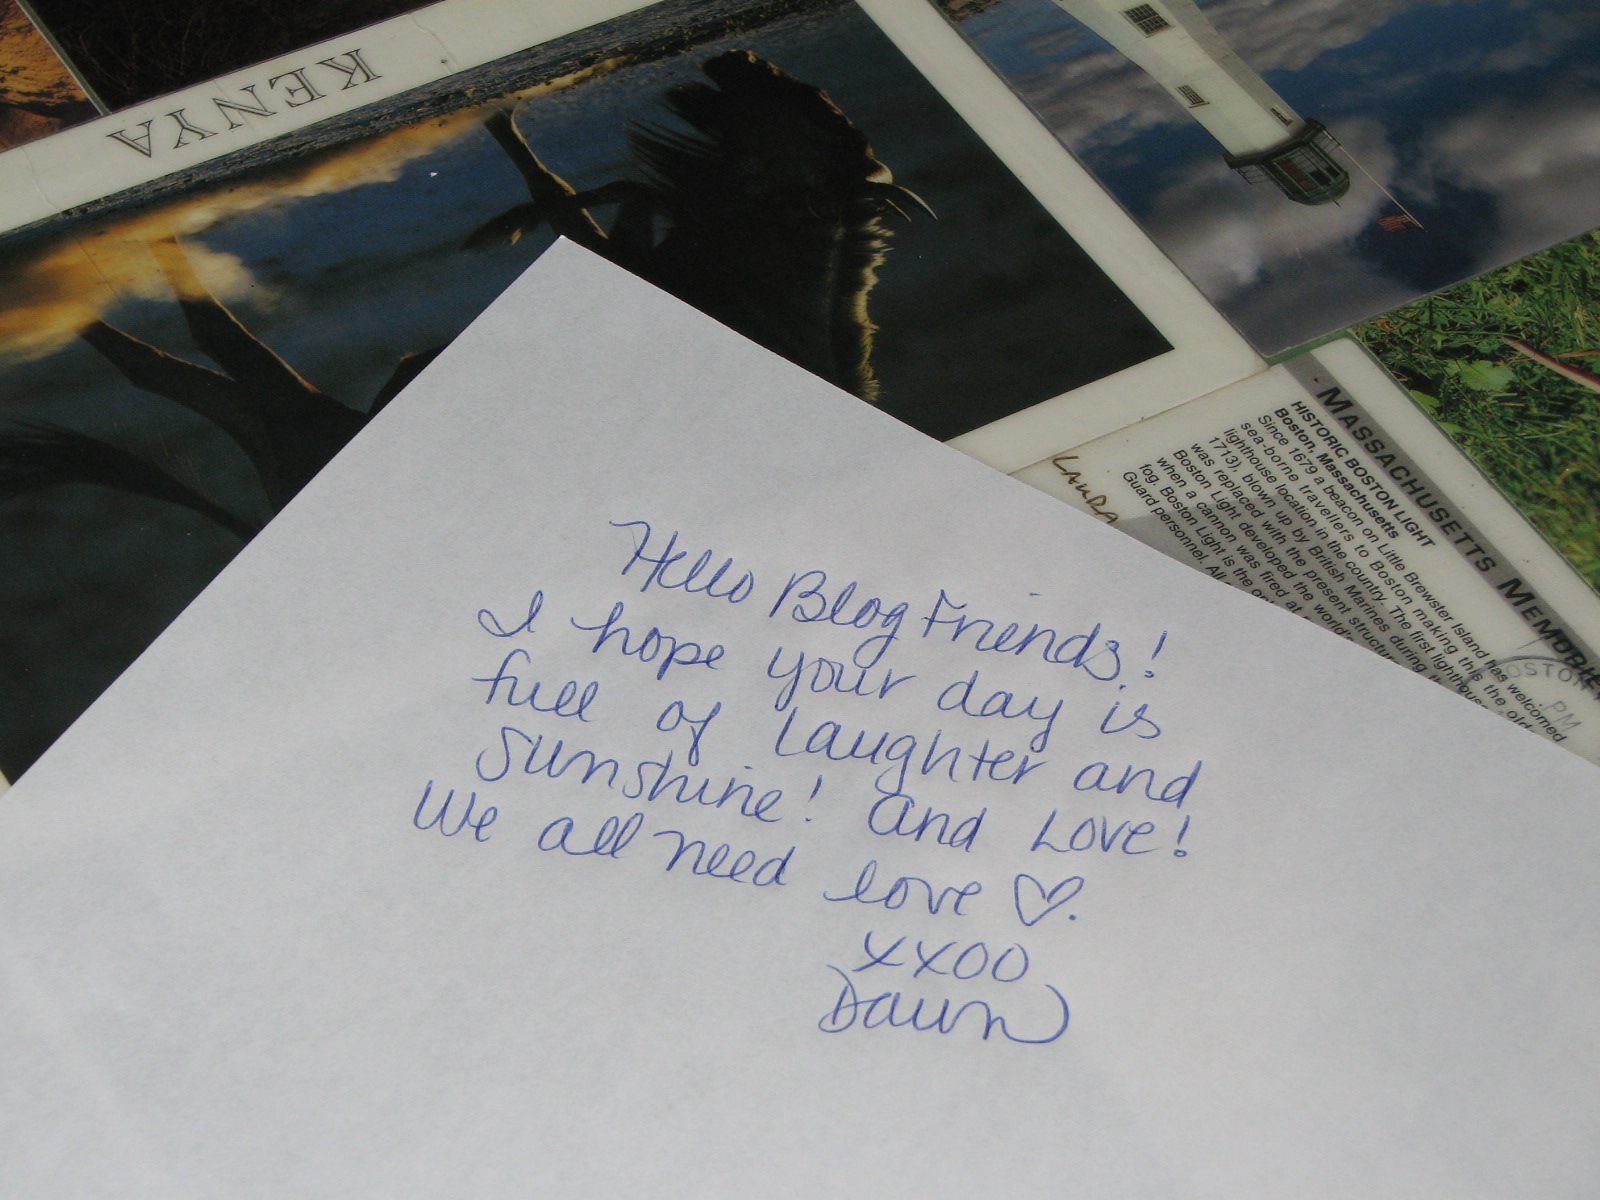 KENYA
Hello Blog Friends!
I hope your day is
full of Laughter and
Sunshine! and Love!
We all need love ♡.
xxoo
Dawn
LAURA
MASSACHUSETTS
HISTORIC BOSTON LIGHT
Boston, Massachusetts
Since 1679 a beacon on Little Brewster Island has welcomed
sea-borne travellers to Boston making this the
lighthouse location in the country. The first
1713), blown up by British Marines during
was replaced with the present
Boston Light developed the world's
when a cannon was fired
fog. Boston Light is the
Guard personnel. All
PM